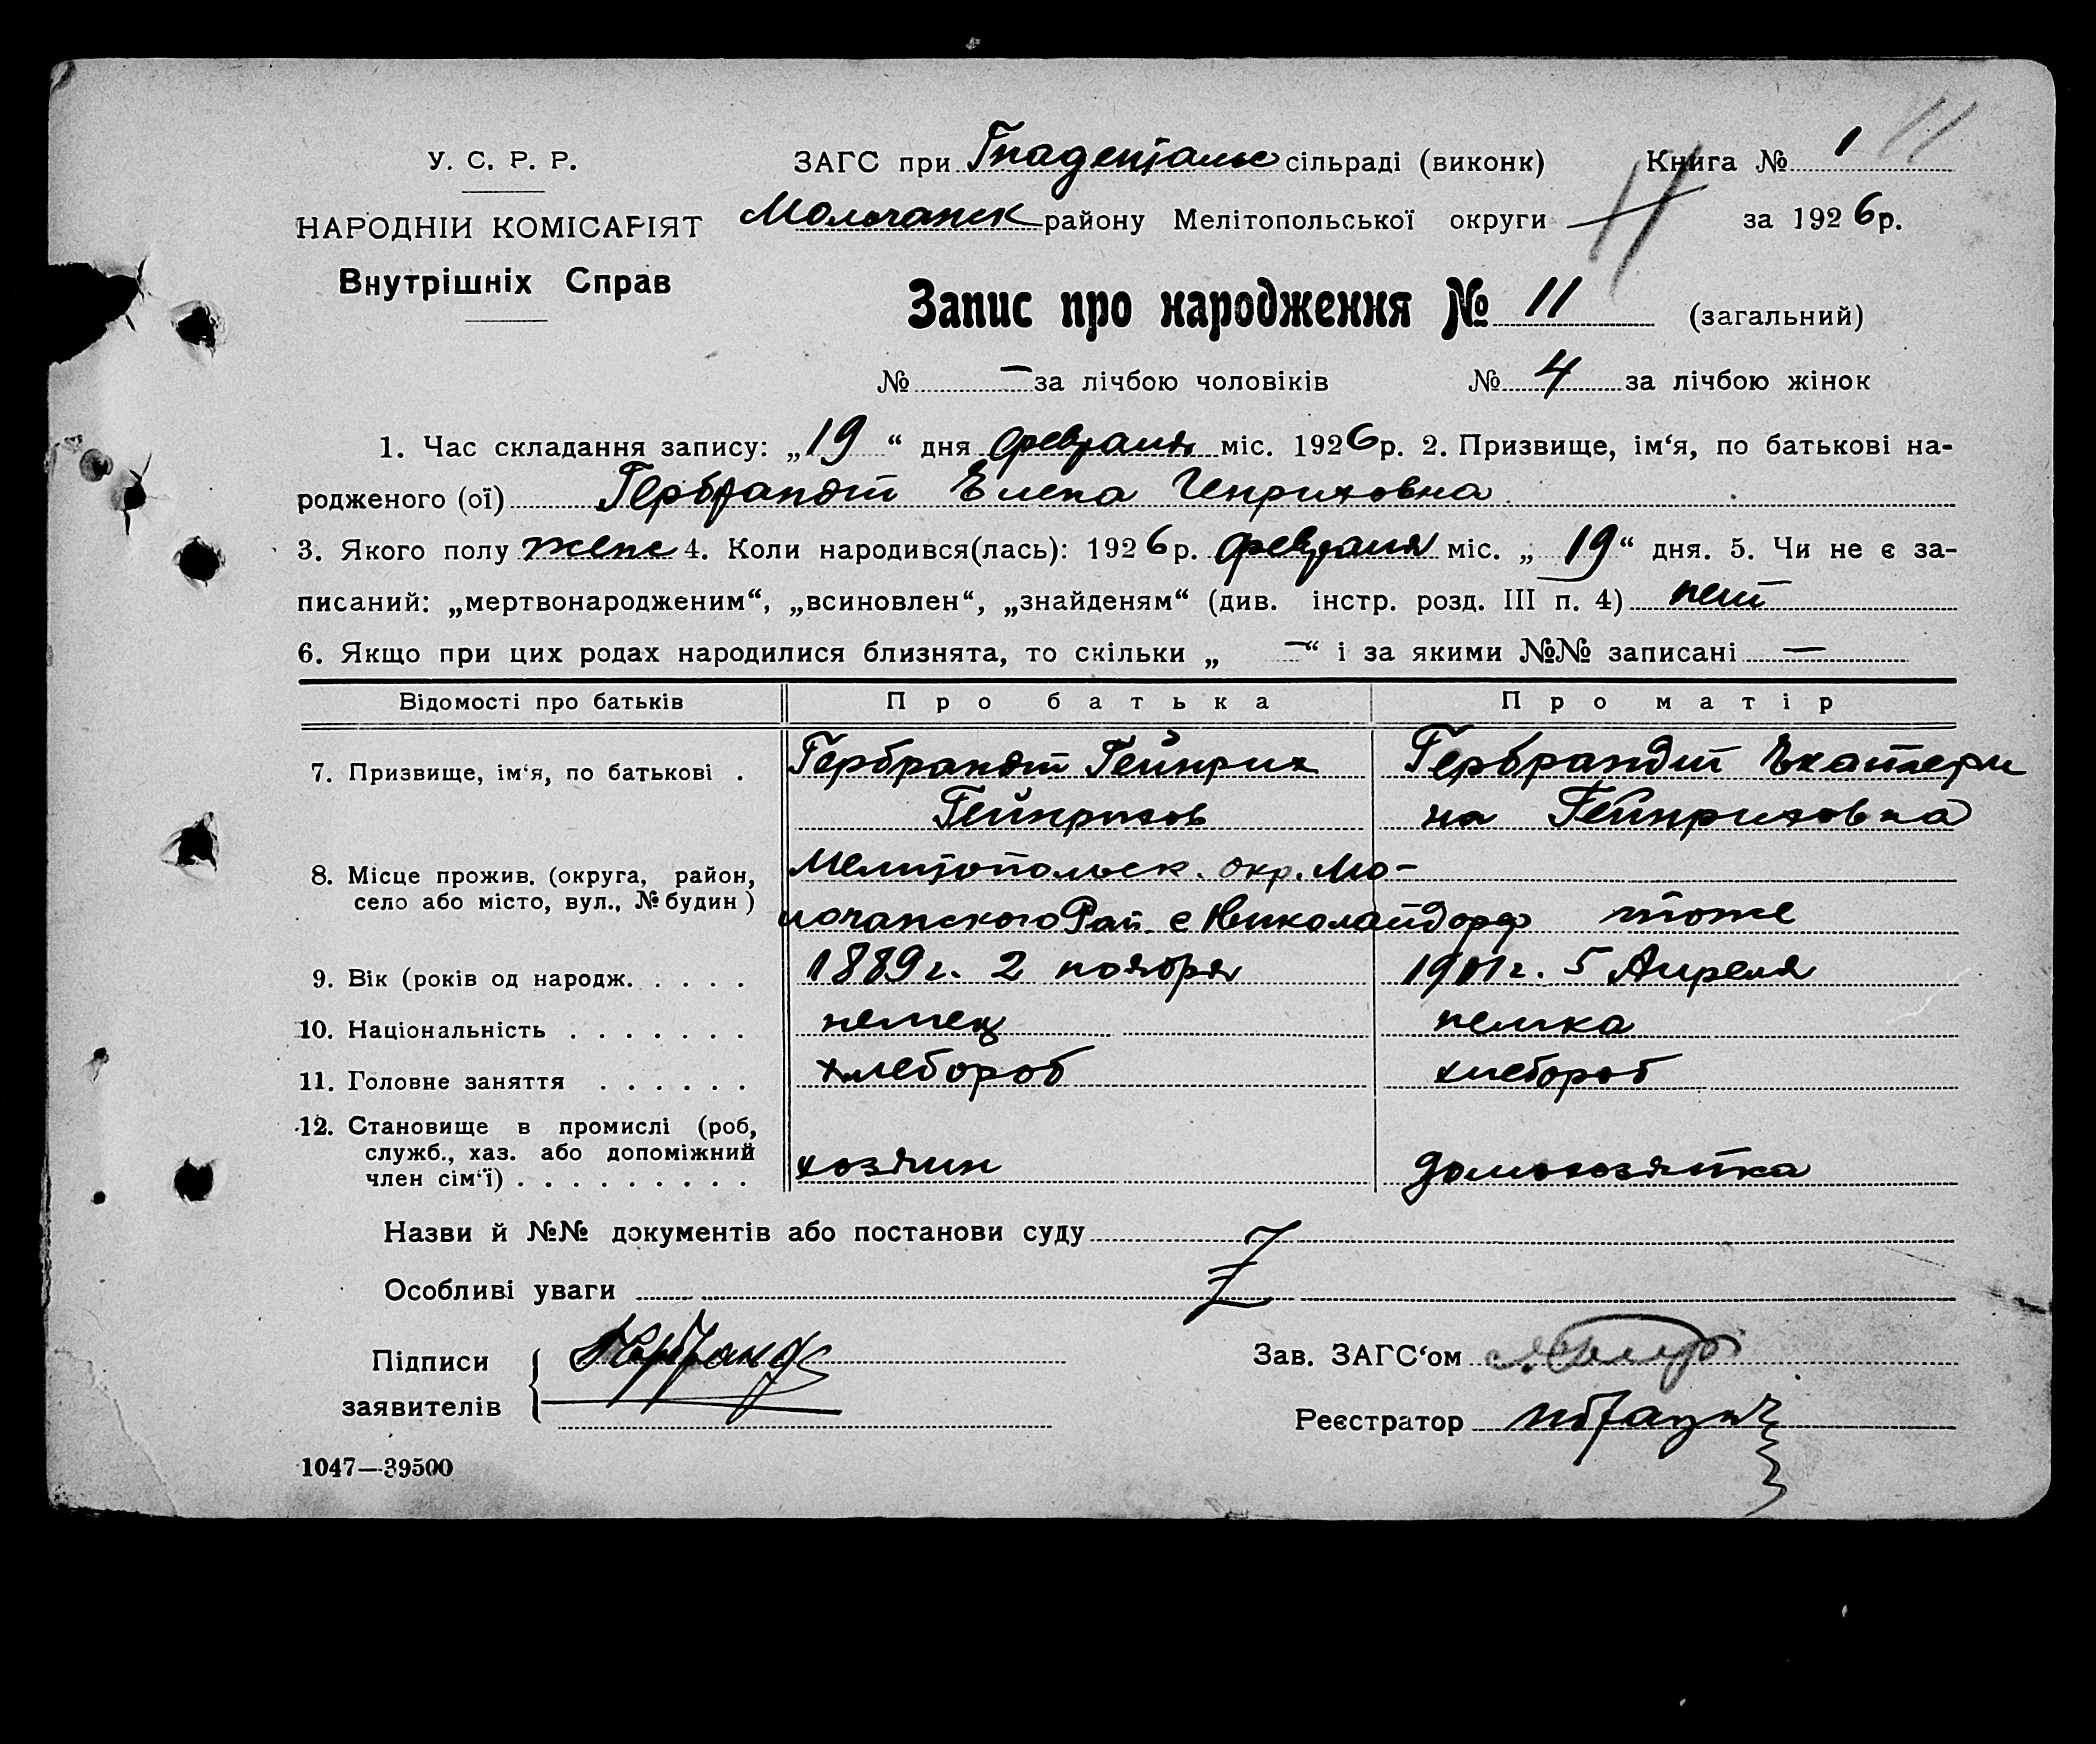 У. С. Р. Р.
НАРОДНІЙ КОМІСАРІЯТ
Внутрішніх Справ
ЗАГС при Гнаденталь сільраді (виконк) Книга № 1 11
Молочанск району Мелітопольської округи 11 за 1926р.
Запис про народження № 11 (загальний)
№ — за лічбою чоловіків № 4 за лічбою жінок
1. Час складання запису: „19“ дня февраля міс. 1926р. 2. Призвище, ім‘я, по батькові на-
родженого (ої) Гербрандт Елена Генриховна
3. Якого полу женс 4. Коли народився(лась): 1926р. февраля міс. „19“ дня. 5. Чи не є за-
писаний: „мертвонародженим“, „всиновлен“, „знайденям“ (див. інстр. розд. III п. 4) нет
6. Якщо при цих родах народилися близнята, то скільки „ —“ і за якими №№ записані —
Відомості про батьків Про батька Про матір
7. Призвище, ім‘я, по батькові . Гербрандт Гейнрих Гербрандт Екатери
Гейнрихов на Гейнриховна
8. Місце прожив. (округа, район, Мелитопольск. окр. Мо-
село або місто, вул., № будин) лочанского Рай с Николайдорф тоже
9. Вік (років од народж. . . . . 1889г. 2 ноября 1901г. 5 Апреля
10. Національність . . . . . . . немец немка
11. Головне заняття . . . . . . хлебороб хлебороб
12. Становище в промислі (роб,
служб., хаз. або допоміжний
член сім‘ї) . . . . . . . . . хозяин домохозяйка
Назви й №№ документів або постанови суду
Особливі уваги
Підписи
заявителів
Зав. ЗАГС‘ом
Реєстратор
1047—39500